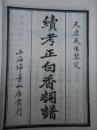 天虚我生鑒定
續考正白香詞譜
上海掃葉山房發行